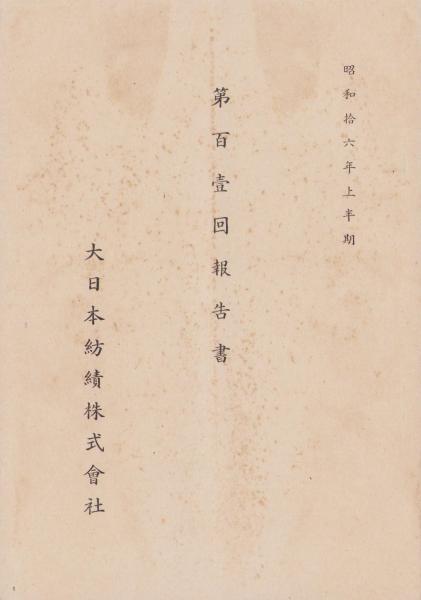 昭和拾六年上半期
第百壹回報告書
大日本紡績株式會社